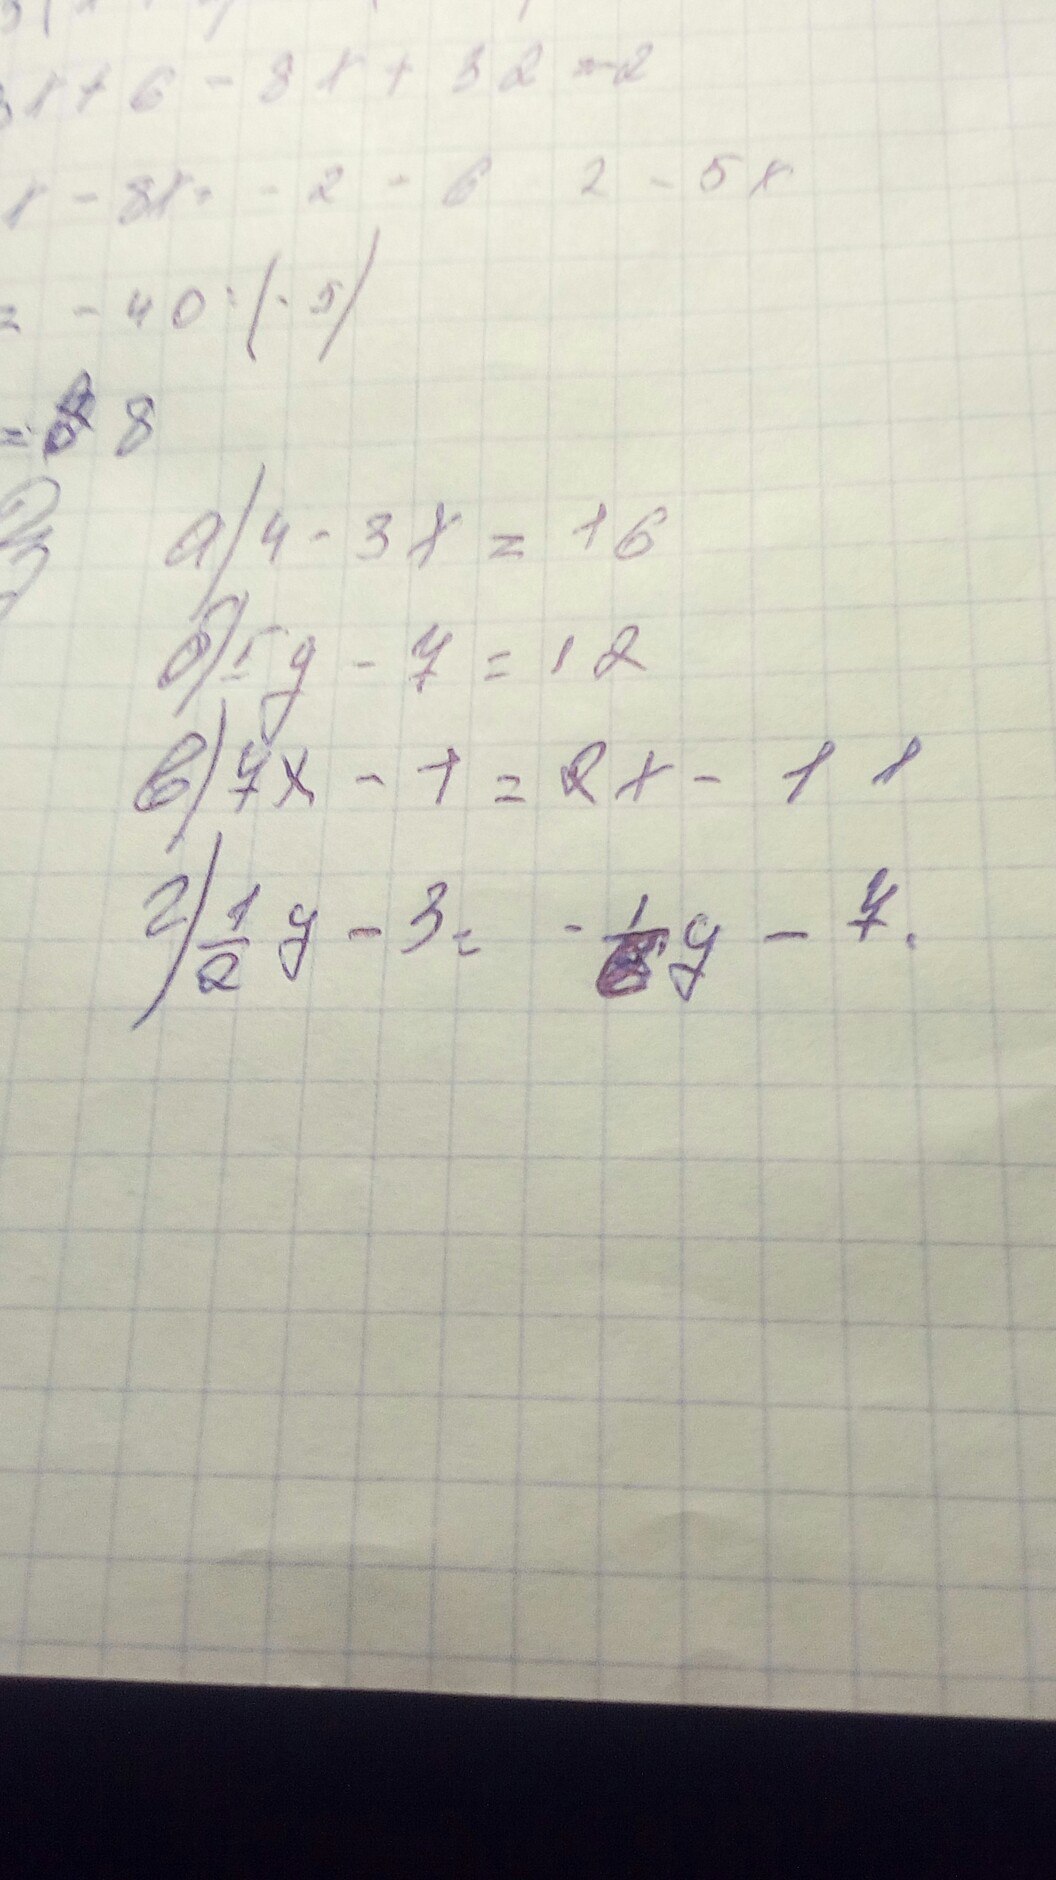 3x + 6 - 8x + 32 = -2
x - 8x = -2 - 6 2 - 5x
= -40 : (-5)
= 8
а) 4 - 3x = 16
б) 5y - 7 = 12
в) 7x - 1 = 2x - 11
г) 1/2 y - 3 = - 1/ y - 7.